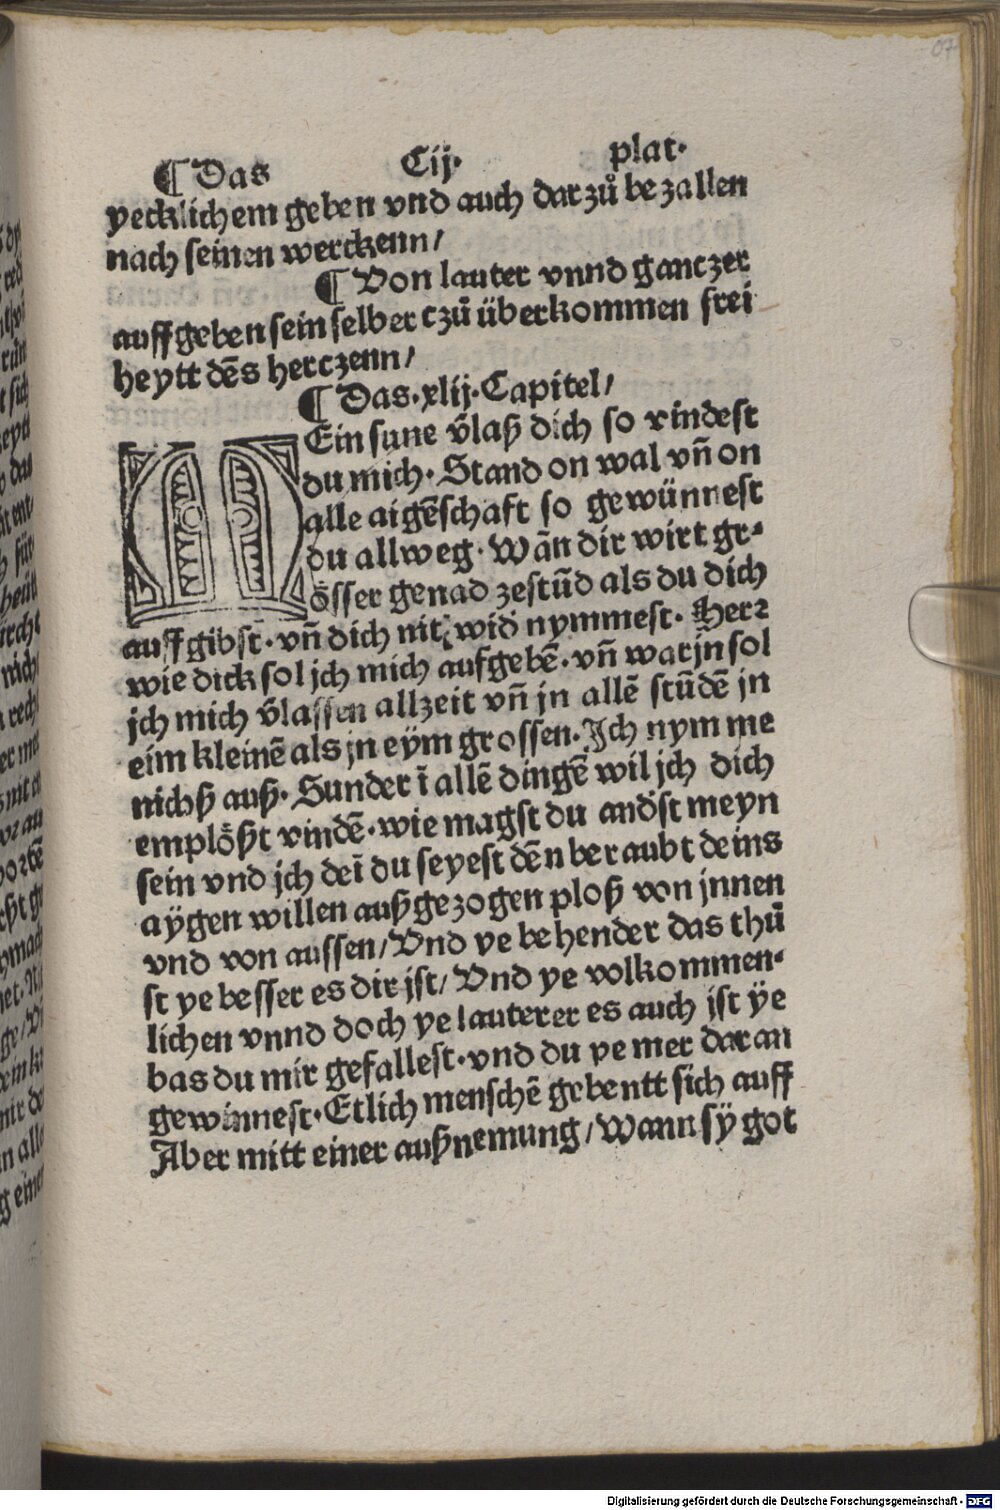 ¶ Das Cij. plat.
yecklichem geben vnd auch darzuͦ bezallen
nach seinen werckenn/
¶ Von lauter vnnd ganczer
auffgeben sein selber czuͦ überkommen frei
heytt dēs herczenn/
¶ Das .xlij. Capitel/
MEin sune v̄laß dich so vindest
du mich. Stand on wal vn̄ on
alle aigēschaft so gewünnest
du allweg. Wān dir wirt gr-
össer genad zestūd als du dich
auffgibst. vn̄ dich nit wid̄ nymmest. Herꝛ
wie dick sol jch mich aufgebē. vn̄ war jn sol
jch mich v̄lassen allzeit vn̄ jn allē stūdē jn
eim kleinē als jn eÿm grossen. Ich nymme
nichß auß. Sunder ī allē dingē wil jch dich
emplößt vindē. wie magst du and̄st meyn
sein vnd jch deī du seyest dēn beraubt deins
aÿgen willen außgezogen ploß von jnnen
vnd von aussen/ Vnd ye behender das thuͦ
st ye besser es dir jst/ Vnd ye volkommen-
lichen vnnd doch ye lauterer es auch jst ÿe
bas du mir gefallest. vnd du ye mer daran
gewinnest. Etlich menschē gebentt sich auff
Aber mitt einer außnemung/ Wann sÿ got
Digitalisierung gefördert durch die Deutsche Forschungsgemeinschaft - DFG